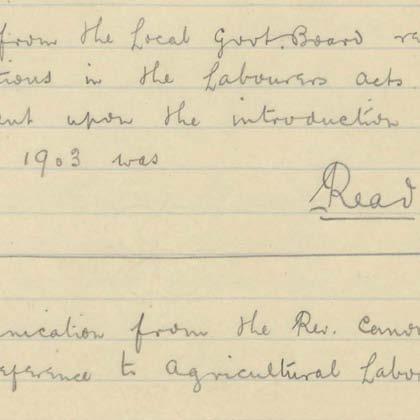 from the Local Govt. Board re
tions in the Labourers acts
ent upon the introduction
1903 was
Read
nication from the Rev. Canon
eference to Agricultural Labo